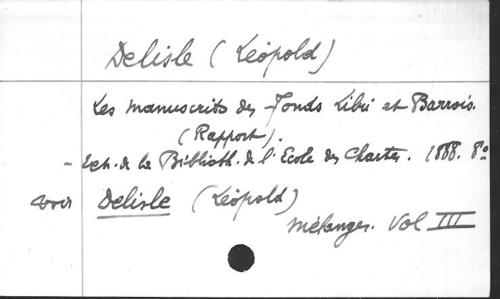 Delisle (Léopold)
Les manuscrits des Fonds Libri et Barrois.
(Rapport).
- Ext. de la Biblioth. de l'Ecole des Chartes. 1888. 8º
voir Delisle (Léopold)
Mélanges. Vol III